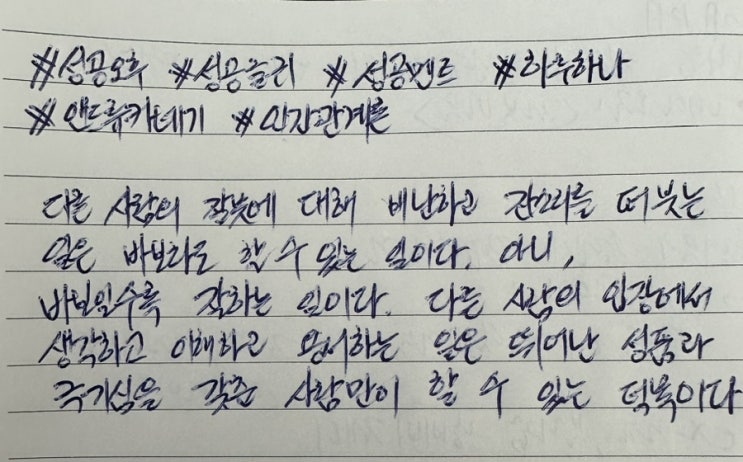 #성공오후 #성공놀러 #성공멘트 #하루하나
#앤드류카네기 #인간관계론
다른 사람의 잘못에 대해 비난하고 잔소리를 퍼붓는
일은 바보라도 할 수 있는 일이다. 아니,
바보일수록 잘하는 일이다. 다른 사람의 입장에서
생각하고 이해하고 용서하는 일은 뛰어난 성품과
극기심을 갖춘 사람만이 할 수 있는 덕목이다